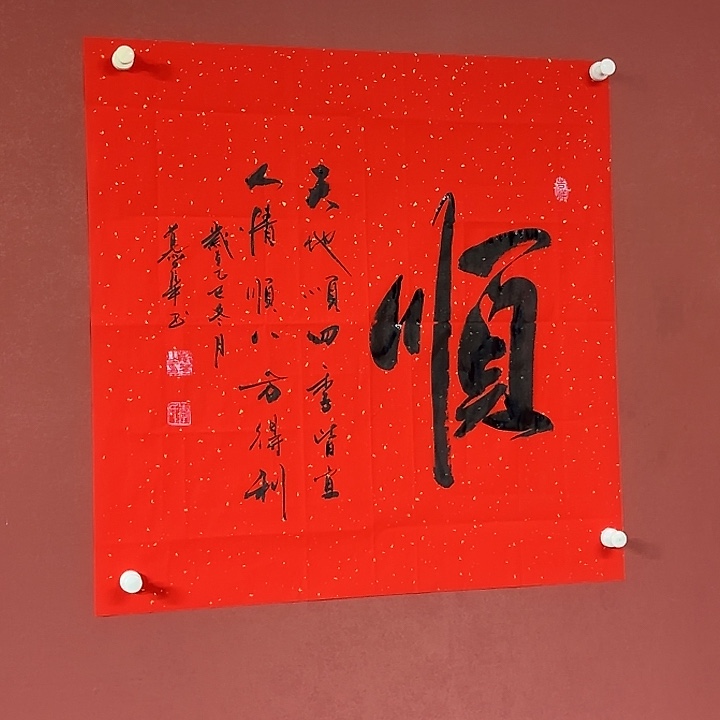 順
天地順四季皆宜
人情順八方得利
歲在乙巳冬月